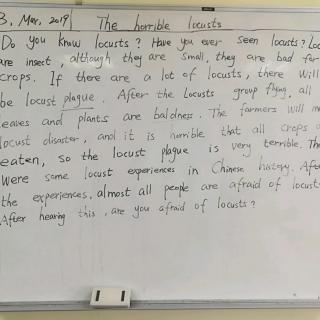 3, Mar, 2019 The horrible locusts
Do you know locusts? Have you ever seen locusts? Loc
are insect, although they are small, they are bad for
crops. If there are a lot of locusts, there will
be locust plague. After the locusts group flying, all
eaves and plants are baldness. The farmers will m
locust disaster, and it is horrible that all crops a
eaten, so the locust plague is very terrible. The
were some locust experiences in Chinese history. Afte
the experiences, almost all people are afraid of locust
After hearing this, are you afraid of locusts?